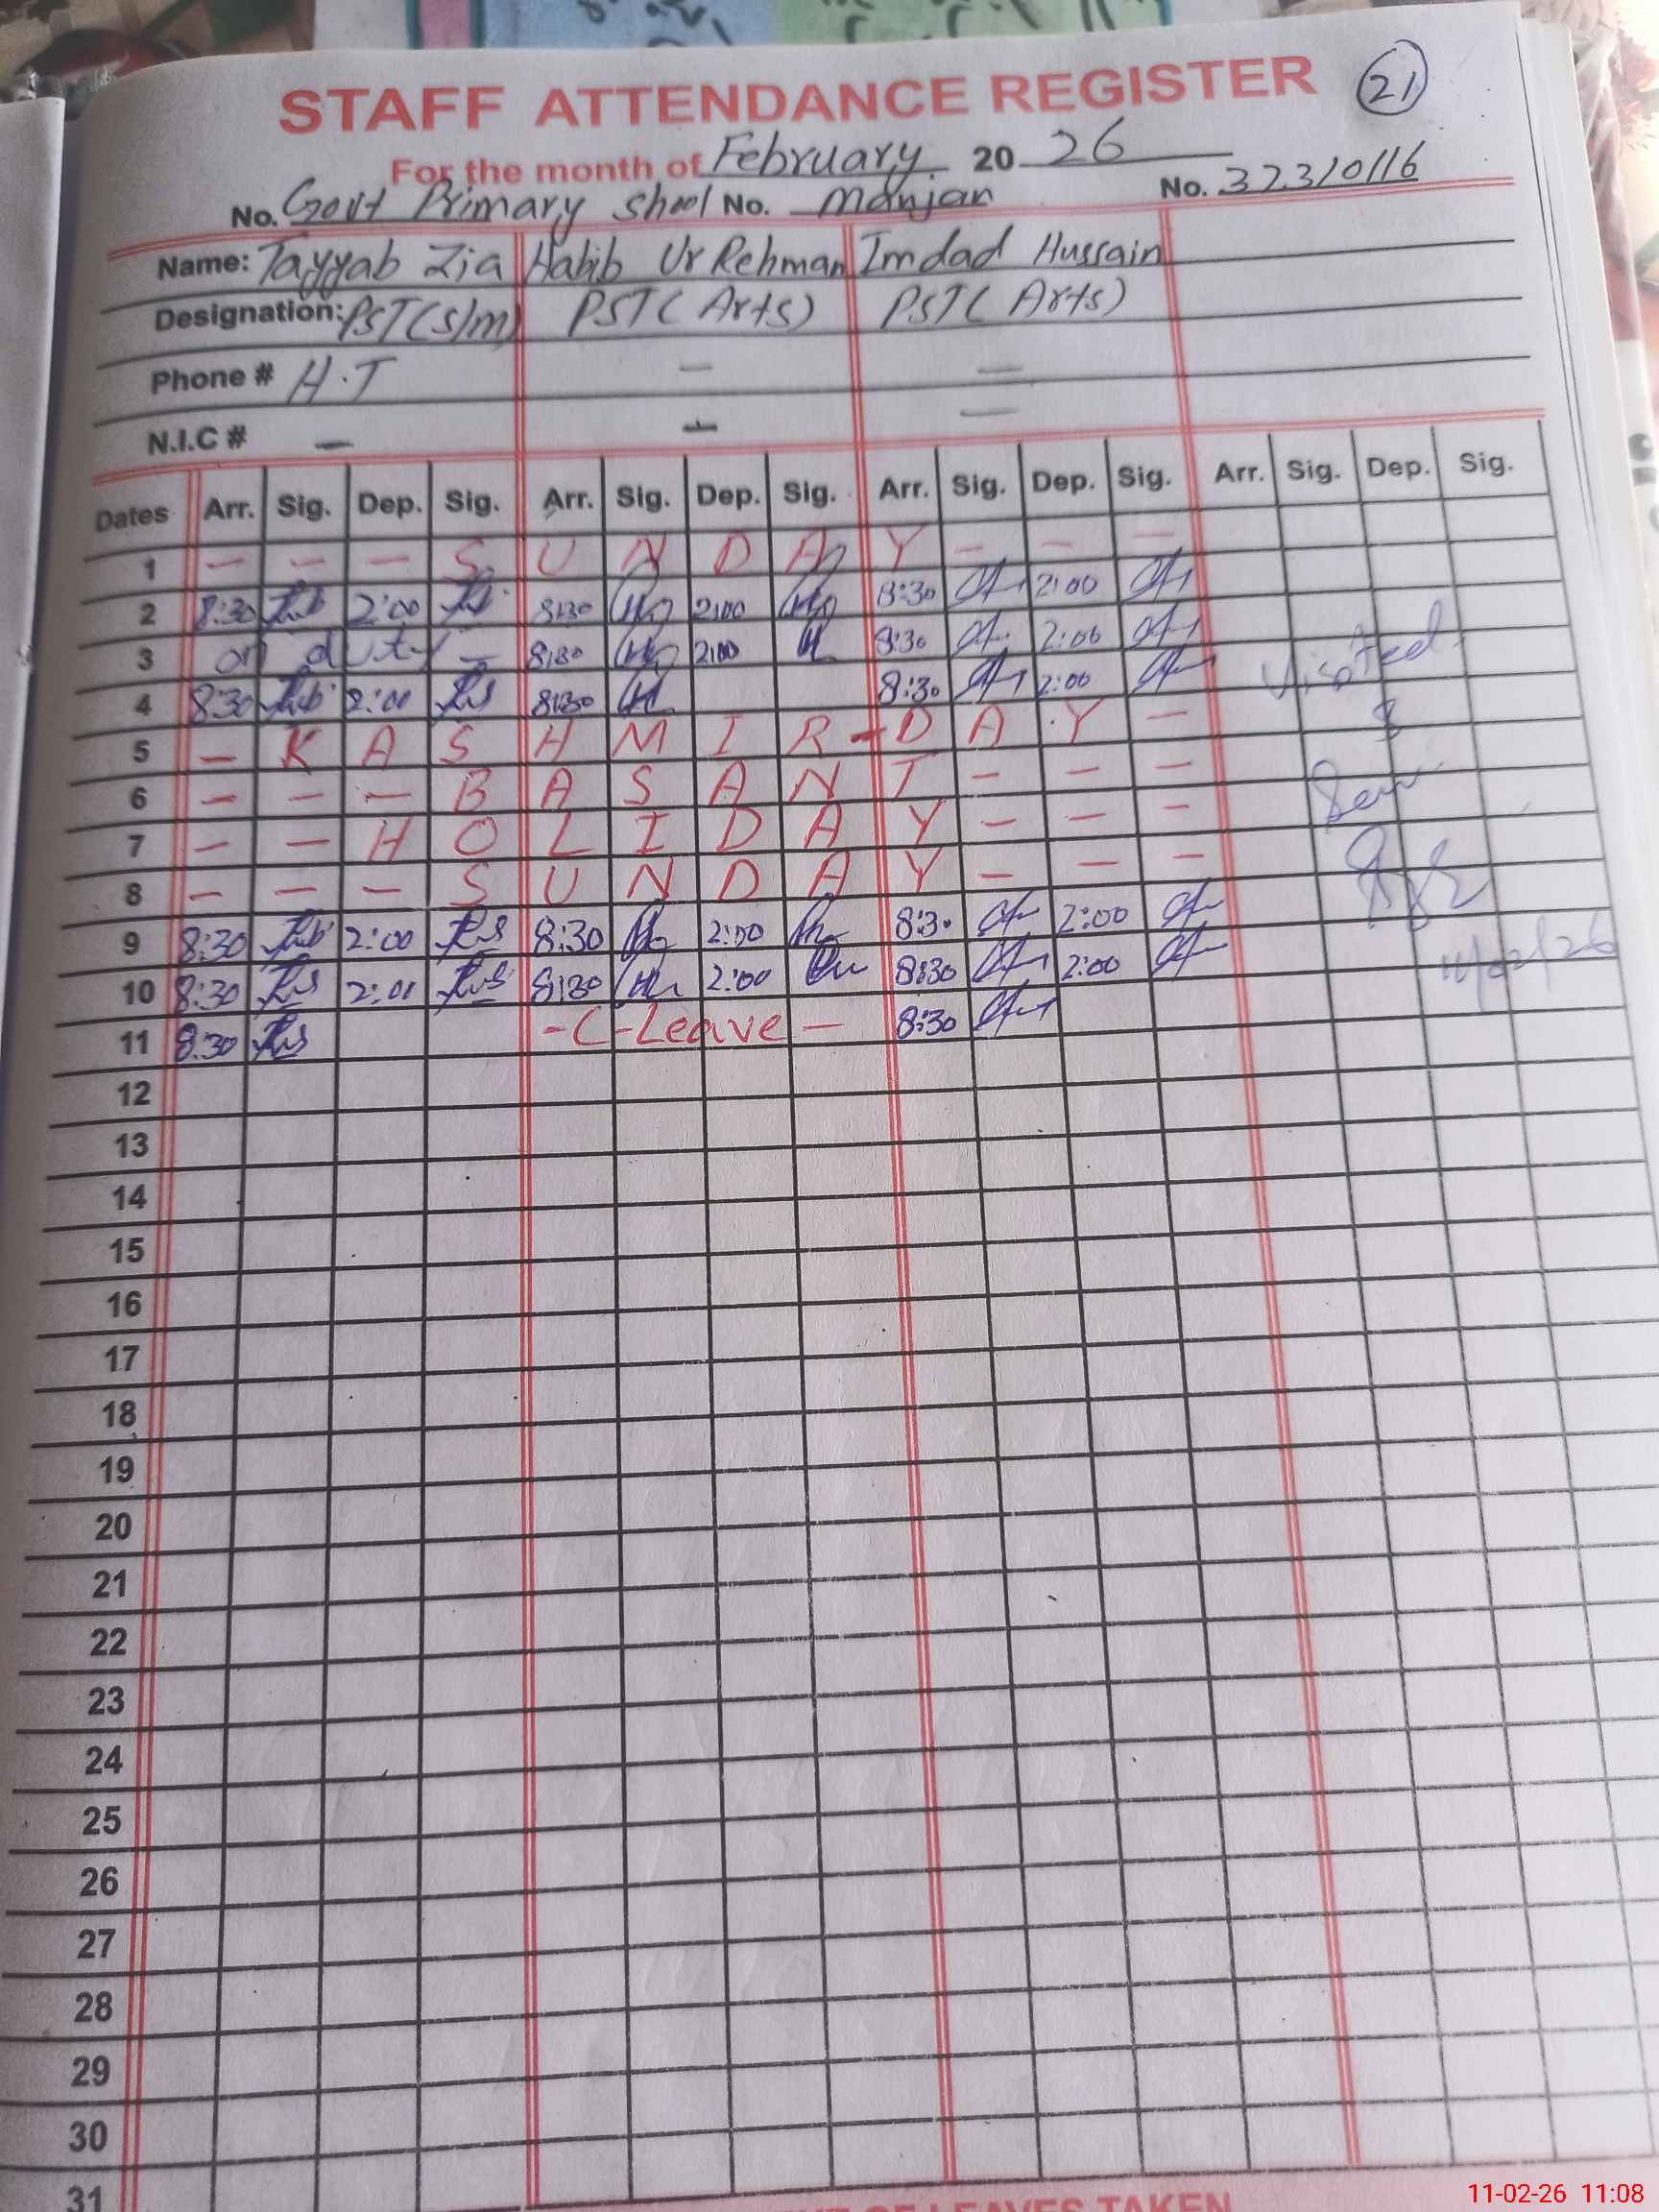 STAFF ATTENDANCE REGISTER 21
For the month of February 20 26
No. Govt Primary Shool No. Manjan No. 32310116
Name: Tayyab Zia Habib Ur Rehman Imdad Hussain
Designation: PST(S/m) PST (Arts) PST (Arts)
Phone # H.T — —
N.I.C # — — —
Dates Arr. Sig. Dep. Sig. Arr. Sig. Dep. Sig. Arr. Sig. Dep. Sig. Arr. Sig. Dep. Sig.
1 — — — S U N D A Y — — —
2 8:30 2:00 8:30 2:00 8:30 2:00
3 on duty — 8:30 2:00 8:30 2:00
4 8:30 2:00 8:30 8:30 2:00 Visited
5 — K A S H M I R - D A Y — &
6 — — — B A S A N T — — —
7 — — H O L I D A Y — — —
8 — — — S U N D A Y — — —
9 8:30 2:00 8:30 2:00 8:30 2:00
10 8:30 2:01 8:30 2:00 8:30 2:00 11/02/26
11 8:30 -C-Leave — 8:30
12
13
14
15
16
17
18
19
20
21
22
23
24
25
26
27
28
29
30
31
OF LEAVES TAKEN
11-02-26 11:08